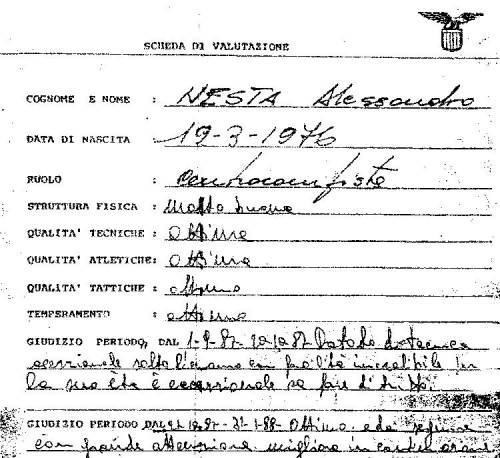 SCHEDA DI VALUTAZIONE
COGNOME E NOME : NESTA Alessandro
DATA DI NASCITA 19-3-1976
RUOLO : Centrocampista
STRUTTURA FISICA : Molto buona
QUALITA' TECNICHE : Ottime
QUALITA' ATLETICHE: Ottime
QUALITA' TATTICHE : Ottime
TEMPERAMENTO : Ottimo
GIUDIZIO PERIODO, DAL 1-9-87 Dotato di tecnica
eccezionale salta l'uomo con facilità incredibile per
la sua età è eccezionale sa fare di tutto.
GIUDIZIO PERIODO DAL -87 - 31-1-88 - Ottimo e da seguire
con grande attenzione migliora in